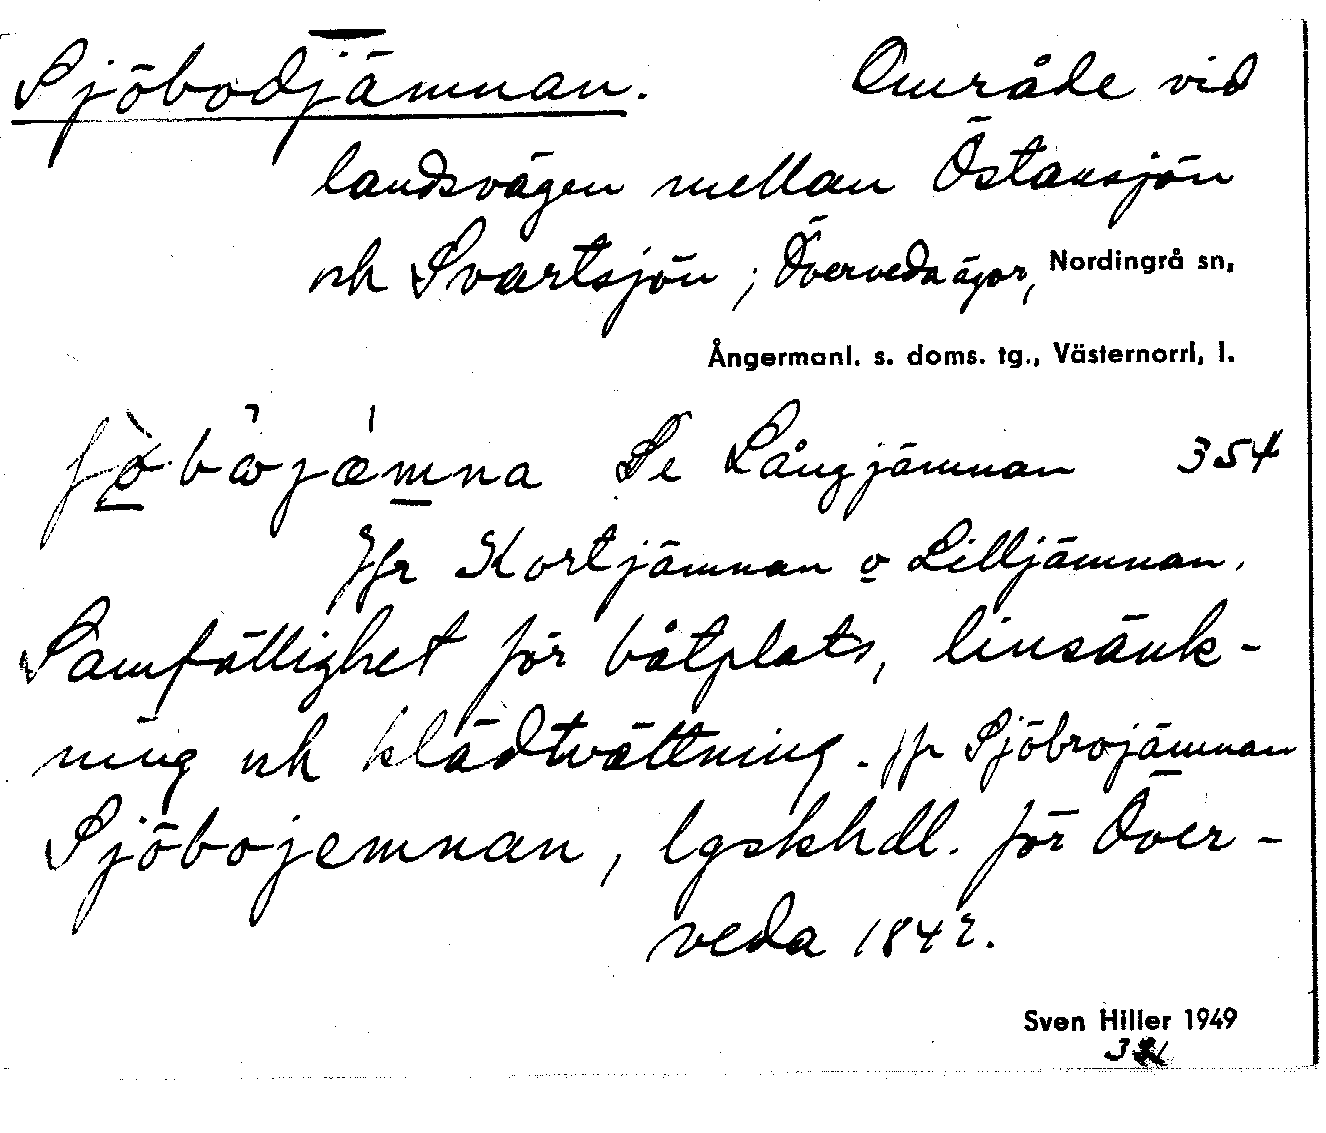 Sjöbodjämnan. Område vid
landsvägen mellan Östansjön
och Svartsjön; Överveda ägor, Nordingrå sn,
Ångermanl. s. doms. tg., Västernorrl, l.
Se Långjämnan 354
Jfr Kortjämnan o Lilljämnan.
Samfällighet för båtplats, linsänk-
ning och klädtvättning. jfr Sjöbrojämnan
Sjöbojemnan, lgskhdl. för Över-
veda 1842.
Sven Hiller 1949